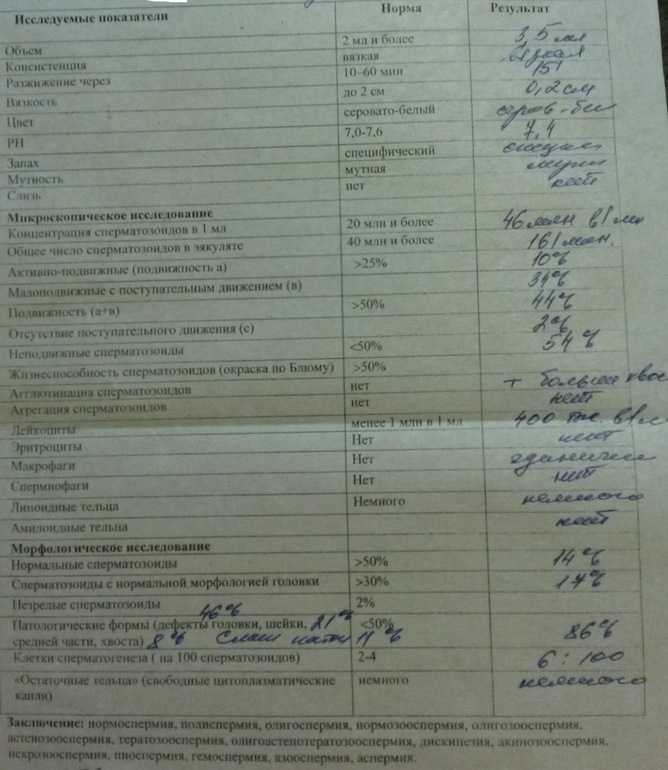 Исследуемые показатели Норма Результат
Объем 2 мл и более 3,5 мл
Консистенция вязкая вязкая
Разжижение через 10–60 мин 15'
Вязкость до 2 см 0,2 см
Цвет серовато-белый серов-бел
PH 7,0-7,6 7,4
Запах специфический специф
Мутность мутная
Слизь нет нет
Микроскопическое исследование
Концентрация сперматозоидов в 1 мл 20 млн и более 46 млн в 1 мл
Общее число сперматозоидов в эякуляте 40 млн и более 161 млн.
Активно-подвижные (подвижность а) >25% 10%
Малоподвижные с поступательным движением (в)
Подвижность (а+в) >50% 44%
Отсутствие поступательного движения (с) 2%
Неподвижные сперматозоиды <50% 54%
Жизнеспособность сперматозоидов (окраска по Блюму) >50%
Агглютинация сперматозоидов нет +
Агрегация сперматозоидов нет нет
Лейкоциты менее 1 млн в 1 мл 400 тыс. в 1 м
Эритроциты Нет нет
Макрофаги Нет единичн
Спермиофаги Нет нет
Липоидные тельца Немного немного
Амилоидные тельца нет
Морфологическое исследование
Нормальные сперматозоиды >50% 14%
Сперматозоиды с нормальной морфологией головки >30% 17%
Незрелые сперматозоиды 2%
46%
Патологические формы (дефекты головки, шейки, 21% <50% 86%
средней части, хвоста) 8% 11%
Клетки сперматогенеза ( на 100 сперматозоидов) 2-4 6:100
«Остаточные тельца» (свободные цитоплазматические немного немного
капли)
Заключение: нормоспермия, полиспермия, олигоспермия, нормозооспермия, олигозооспермия,
астенозооспермия, тератозооспермия, олигоастенотератозооспермия, дискинезия, акинозооспермия,
некрозооспермия, пиоспермия, гемоспермия, азооспермия, аспермия.